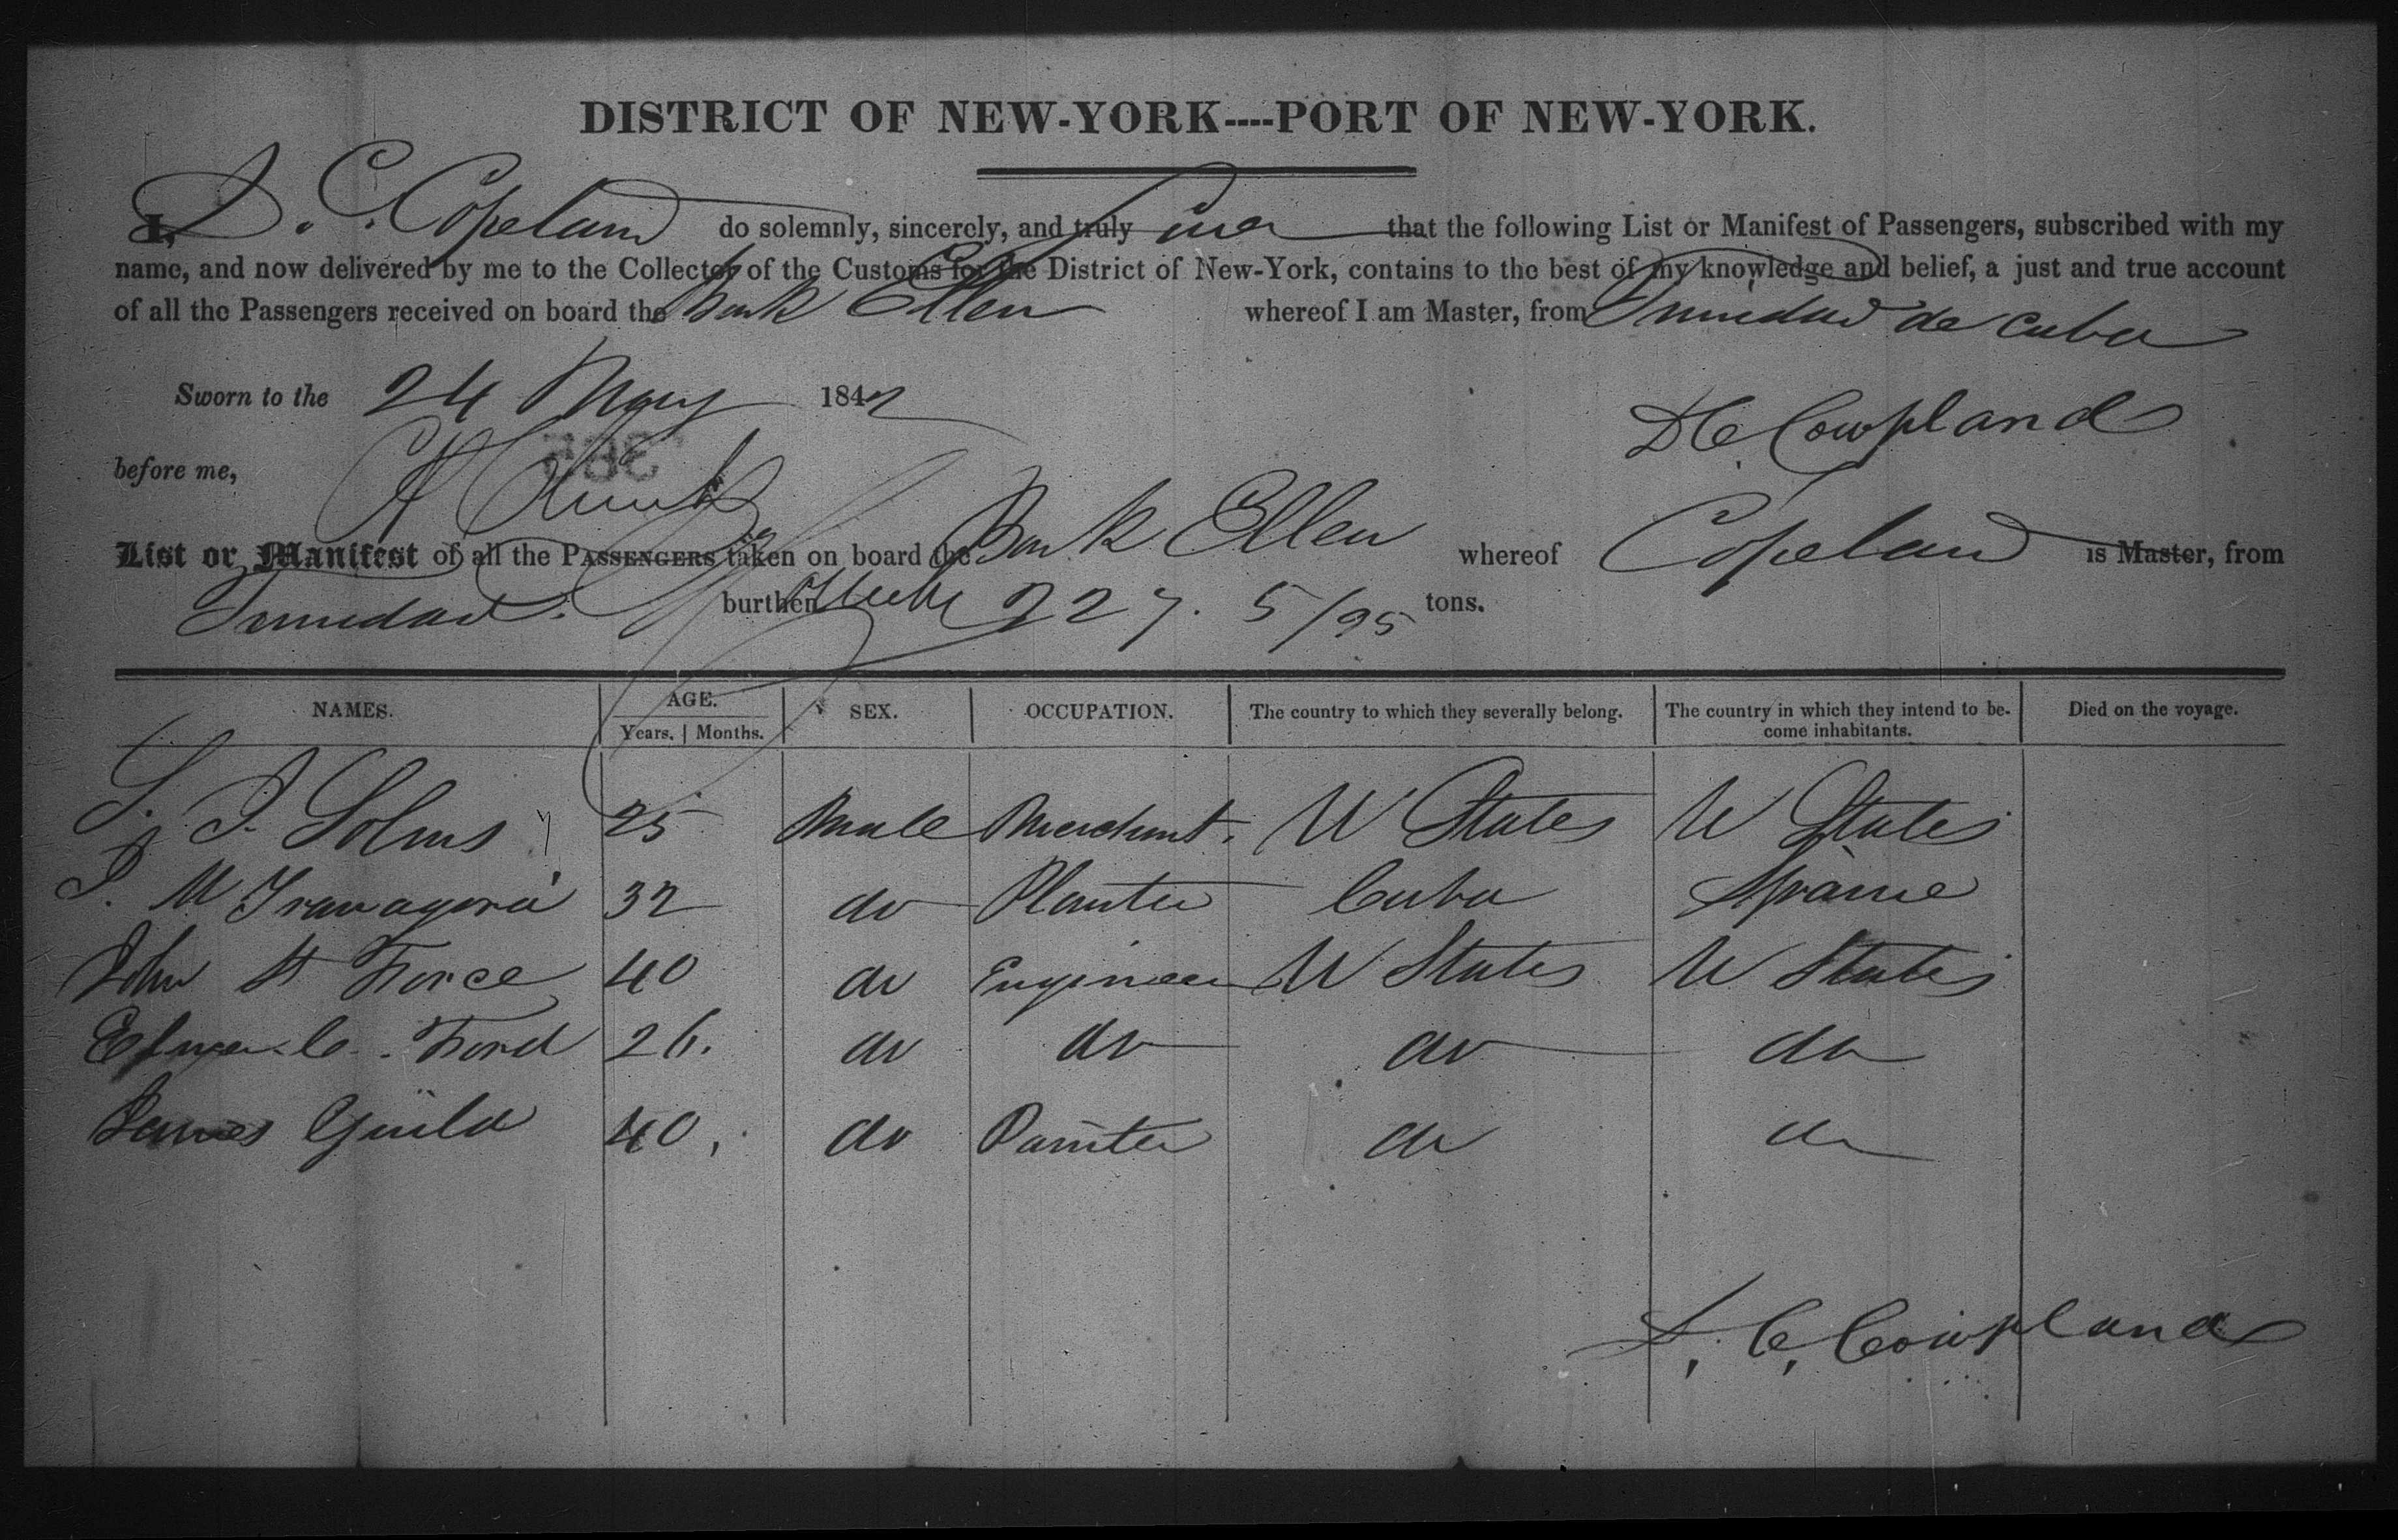 DISTRICT OF NEW-YORK----PORT OF NEW-YORK.
I, D. C. Copeland do solemnly, sincerely, and truly swear that the following List or Manifest of Passengers, subscribed with my
name, and now delivered by me to the Collector of the Customs for the District of New-York, contains to the best of my knowledge and belief, a just and true account
of all the Passengers received on board the Bark Ellen whereof I am Master, from Trinidad de Cuba
Sworn to the 24 May 1842
D C Cowpland
before me,
List or Manifest of all the PASSENGERS taken on board the Bark Ellen whereof Copeland is Master, from
Trinidad. burthen 227. 5/95 tons.
NAMES. AGE. SEX. OCCUPATION. The country to which they severally belong. The country in which they intend to be- Died on the voyage.
Years. Months. come inhabitants.
S. J. Solms 25 Male Merchant. U States U States
J. M 32 do Planter Cuba
John H Force 40 do Engineer U States U States
C. Ford 26. do do do do
James Guild 40. do Painter do do
D. C. Cowpland